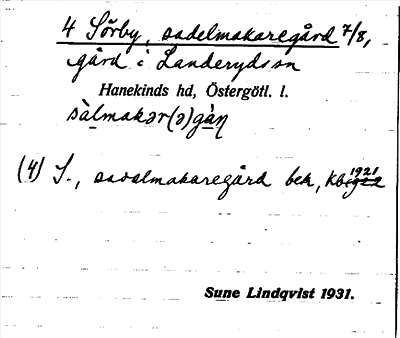 4 Sörby, sadelmakaregård 7/8,
gård i Landeryds sn
Hanekinds hd, Östergötl. l.
sàlmakər(ə)gàn
(4) S., sadelmakaregård bek, Kb 1921
Sune Lindqvist 1931.